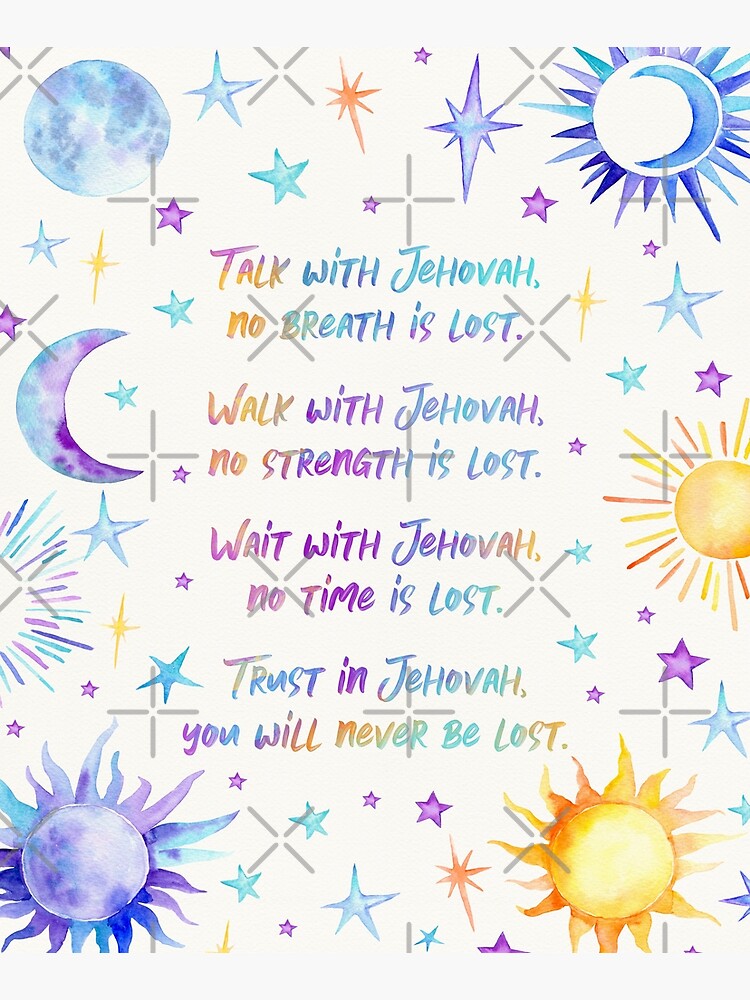 Talk with Jehovah,
no breath is lost.
Walk with Jehovah,
no strength is lost.
Wait with Jehovah,
no time is lost.
Trust in Jehovah,
you will never be lost.